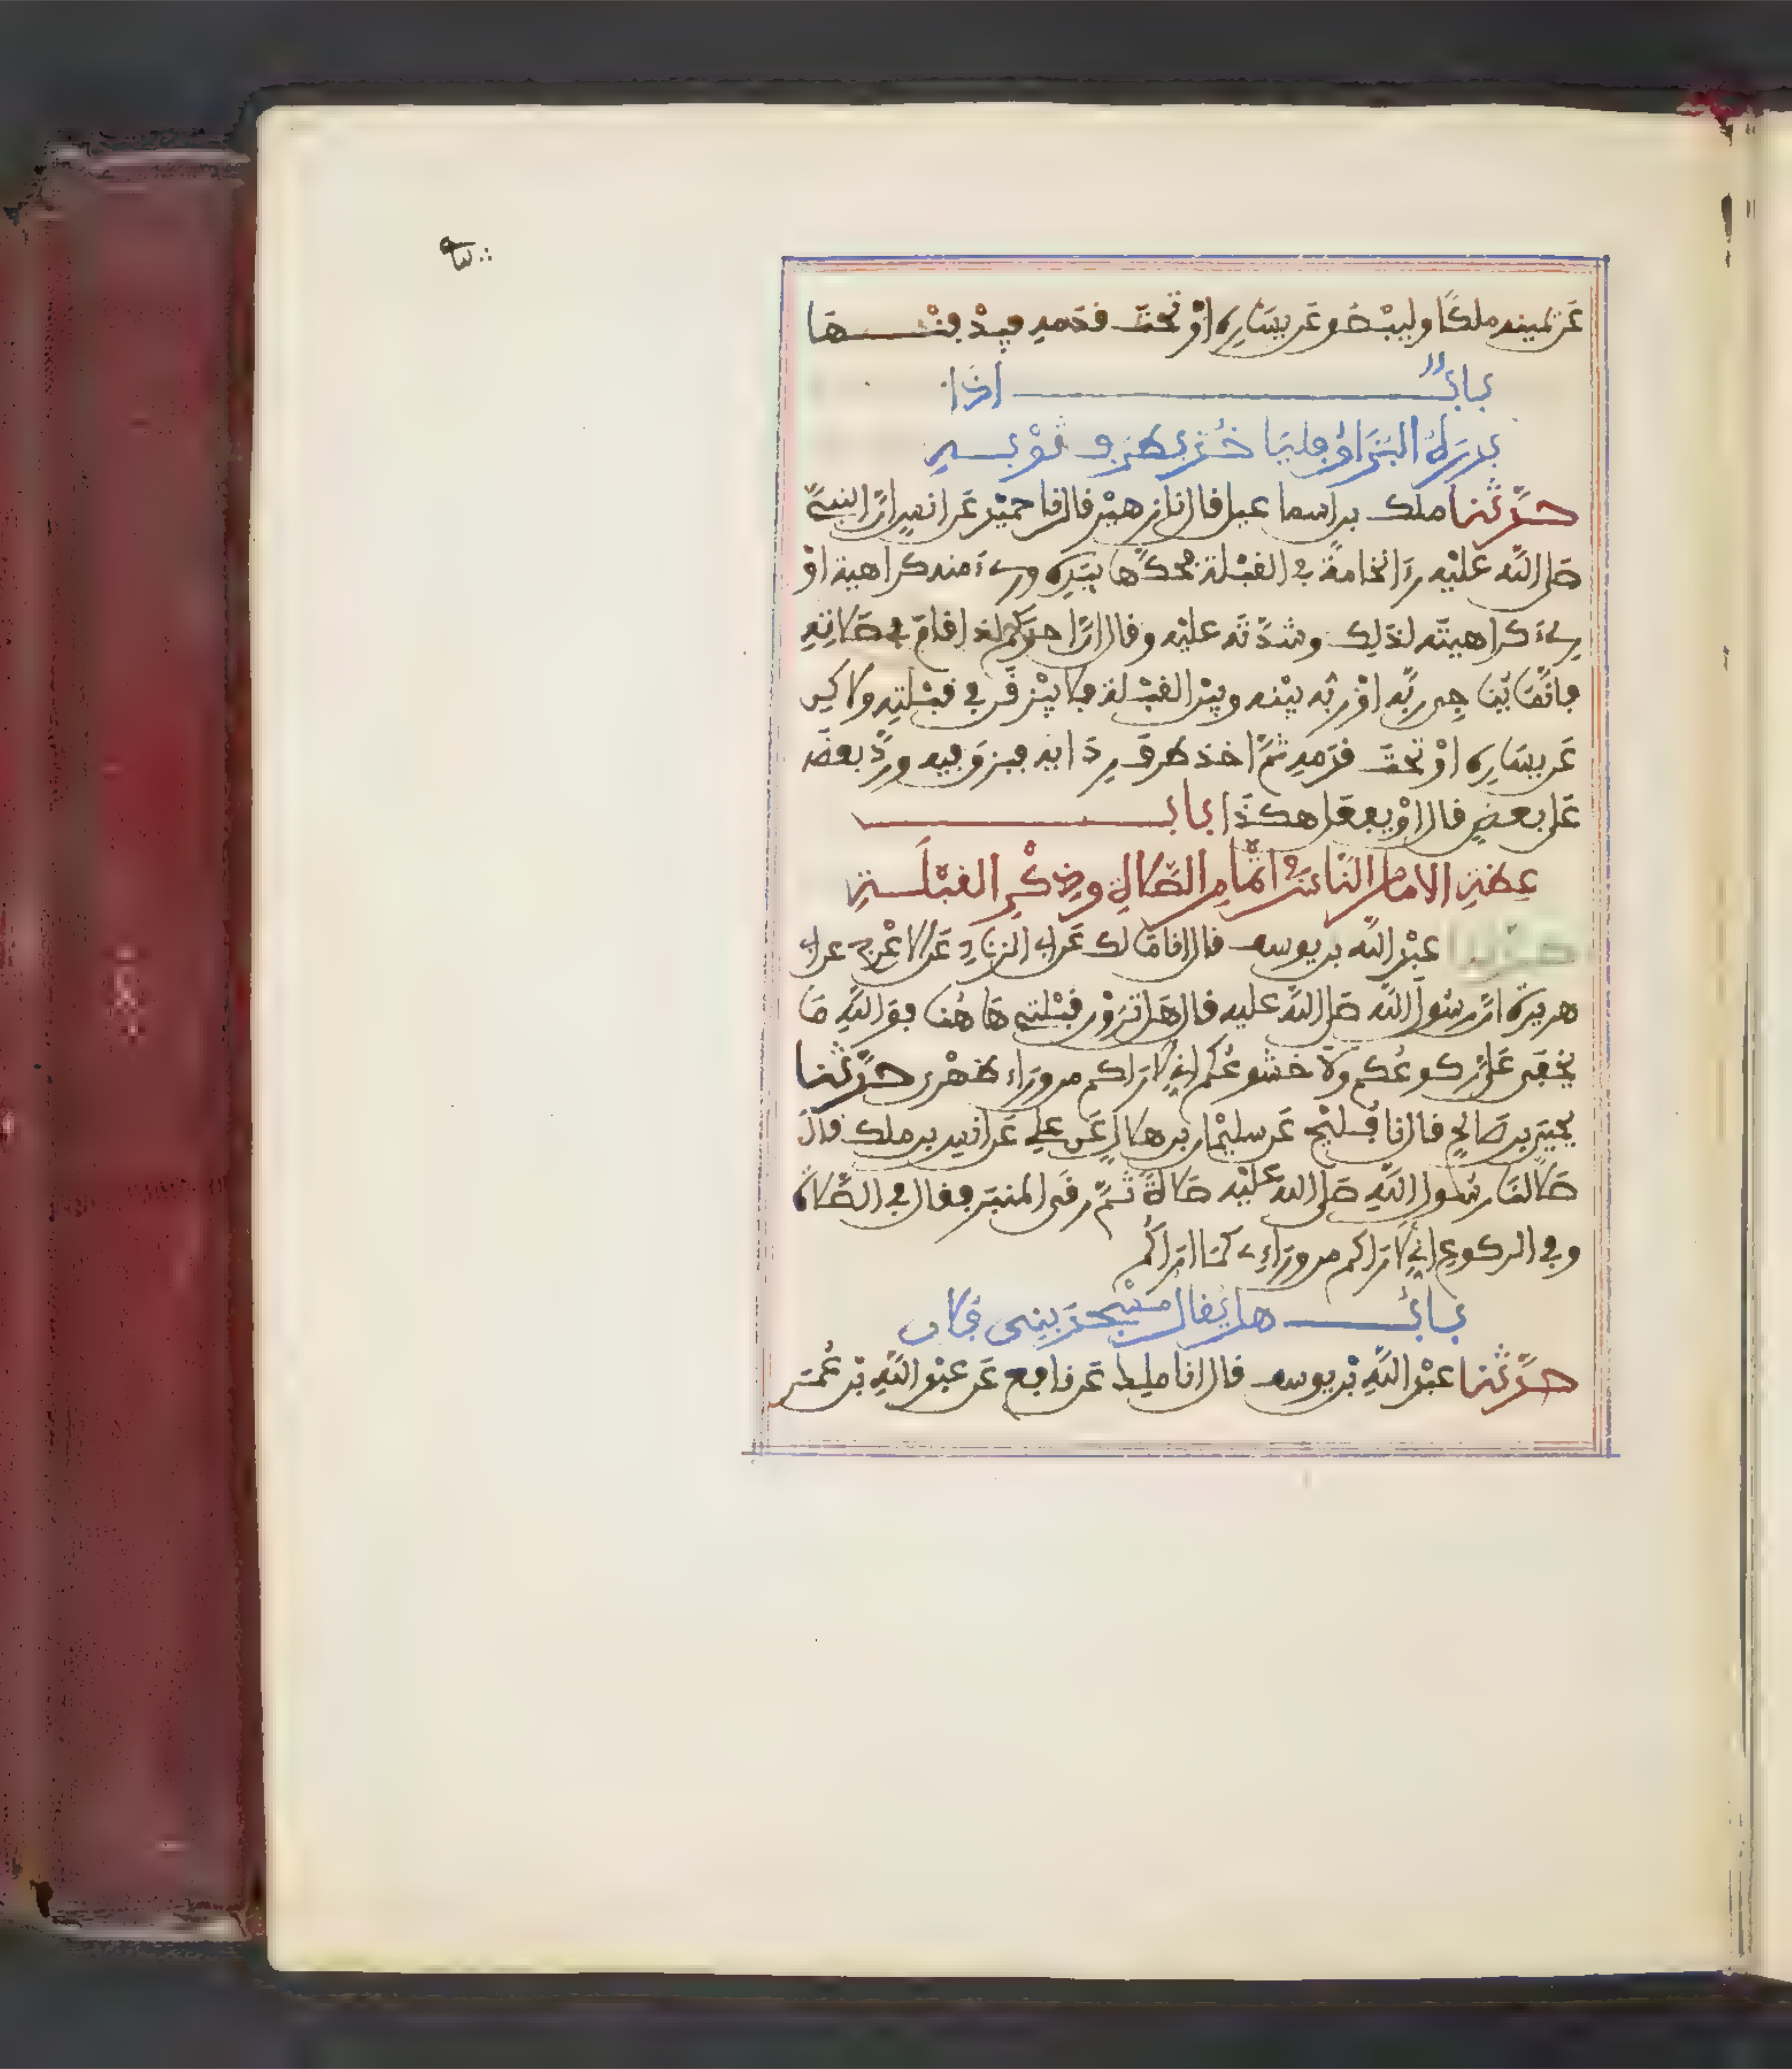 عن يمينه ملكًا وليبصق عن يساره أو تحت قدمه فيدفنها
باب إذا
بدره البزاق فلياخذ بطرف ثوبه
حدثنا ملك بن اسماعيل قال نا زهير قال نا حميد عن انس ان النبي
صلى الله عليه رءا نخامة في القبلة فحكها بيده ورءي منه كراهية او
رءي كراهيته لذلك وشدته عليه وقال ان احدكم اذا قام في صلاته
فانما يناجي ربه او ربه بينه وبين القبلة فلا يبزقن في قبلته ولاكن
عن يساره او تحت قدمه ثم اخذ طرف ردايه فبزق فيه ورد بعضه
على بعض قال او يفعل هكذا باب
عظة الامام الناس في اتمام الصلاة وذكر القبلة
حدثنا عبد الله بن يوسف قال انا مالك عن ابي الزناد عن الاعرج عن ابي
هريرة ان رسول الله صلى الله عليه قال هل ترون قبلتي ها هنا فوالله ما
يخفى علي ركوعكم ولا خشوعكم اني لاراكم من وراء ظهري حدثنا
يحيى بن صالح قال نا فليح عن سليمان بن هلال عن علي عن انس بن ملك قال
صلى لنا رسول الله صلى الله عليه صلاة ثم رقى المنبر فقال في الصلاة
وفي الركوع اني لاراكم من وراءي كما اراكم
باب هل يقال مسجد بني فلان
حدثنا عبد الله بن يوسف قال انا ملك عن نافع عن عبد الله بن عمر